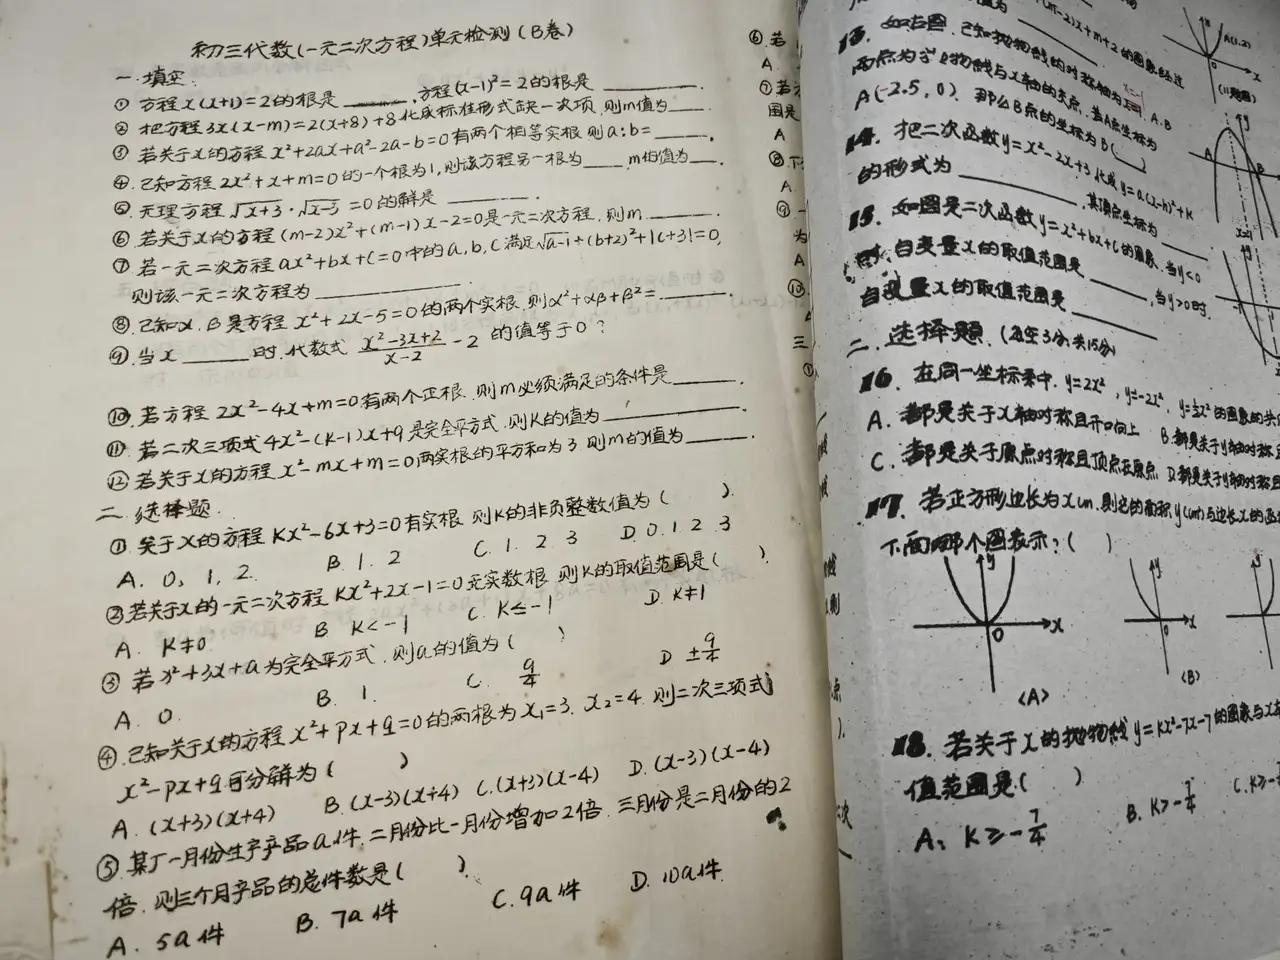 初三代数(一元二次方程)单元检测(B卷)
一.填空:
① 方程x(x+1)=2的根是____,方程(x-1)²=2的根是____.
② 把方程3x(x-m)=2(x+8)+8化成标准形式缺一次项,则m值为____.
③ 若关于x的方程x²+2ax+a²-2a-b=0有两个相等实根,则a:b=____.
④ 已知方程2x²+x+m=0的一个根为1,则该方程另一根为____m的值为____.
⑤ 无理方程√x+3·√x-5=0的解是____.
⑥ 若关于x的方程(m-2)x²+(m-1)x-2=0是一元二次方程,则m____.
⑦ 若一元二次方程ax²+bx+c=0中的a,b,c满足√a-1+(b+2)²+|c+3|=0,
则该一元二次方程为____
⑧ 已知α.β是方程x²+2x-5=0的两个实根,则α²+αβ+β²=____.
⑨ 当x____时,代数式 (x²-3x+2)/(x-2) - 2 的值等于0?
⑩ 若方程2x²-4x+m=0有两个正根,则m必须满足的条件是____.
⑪ 若二次三项式4x²-(k-1)x+9是完全平方式,则k的值为____.
⑫ 若关于x的方程x²-mx+m=0两实根的平方和为3,则m的值为____.
二.选择题.
①. 关于x的方程kx²-6x+3=0有实根,则k的非负整数值为( ).
A. 0, 1, 2. B. 1. 2 C. 1. 2 3 D. 0. 1. 2. 3
②若关于x的一元二次方程kx²+2x-1=0无实数根,则k的取值范围是( )
A. k≠0 B k<-1 C. k≤-1 D. k≠1
③ 若x²+3x+a为完全平方式,则a的值为( )
A. 0. B. 1. C. 9/4 D ±9/4
④.已知关于x的方程x²+px+q=0的两根为x₁=3. x₂=4.则二次三项式
x²-px+q可分解为( )
A.(x+3)(x+4) B.(x-3)(x+4) C.(x+3)(x-4) D.(x-3)(x-4)
⑤.某厂一月份生产产品a件.二月份比一月份增加2倍.三月份是二月份的2
倍.则三个月产品的总件数是( ).
A. 5a件 B. 7a件 C. 9a件 D. 10a件.
⑥ 若
A.
⑦
图是
A
⑧ 下
A.
⑨
为
A
⑩
三
值为____ +m+2的图象经过
13.如右图.已知抛物线的对称轴为
两点为 抛物线与x轴的交点.且A点坐标为 A.B
A(-2.5,0).那么B点的坐标为B(__)
14.把二次函数y=x²-2x+3化成y=a(x-h)²+k
的形式为____,其顶点坐标为____
15.如图是二次函数y=x²+bx+c的图象,当y<0
时,自变量x的取值范围是____,当y>0时.
自变量x的取值范围是____
A(1,2)
(11题图)
二.选择题.(每空3分,共15分)
16.在同一坐标系中,y=2x²,y=-2x²,y=½x²的图象的共
A.都是关于x轴对称且开口向上 B.都是关于y轴对称且
C.都是关于原点对称且顶点在原点 D.都是关于y轴对称且
17.若正方形边长为xcm,则它的面积y(cm²)与边长x的函
下面哪个图表示:( )
<A>
<B>
18.若关于x的抛物线y=kx²-7x-7的图象与x
值范围是( )
A. k≥-7/4 B. k>-7/4 C. k≥-